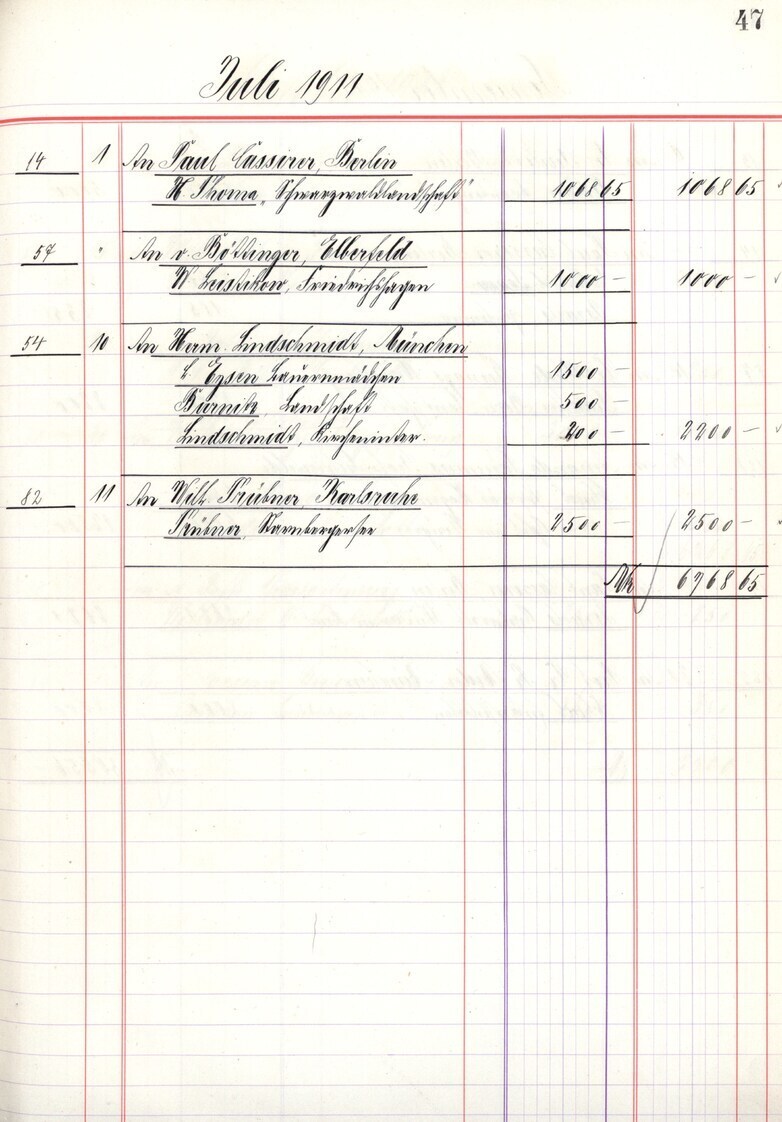 47
Juli 1911
14 1 An Paul Cassirer, Berlin
H. Thoma „Schwarzwaldlandschaft" 1068 65 1068 65
57 " An v. Böttinger, Elberfeld
W Leistikow, Friedrichshagen 1000 — 1000 —
54 10 An Herm. Lindschmidt, München
L Eysen Bauernmädchen 1500 —
Burnitz, Landschaft 500 —
Lindschmidt, Kircheninter. 200 — 2200 —
82 11 An Wilh. Trübner, Karlsruhe
Trübner, Starnbergersee 2500 — 2500 —
Mk 6768 65